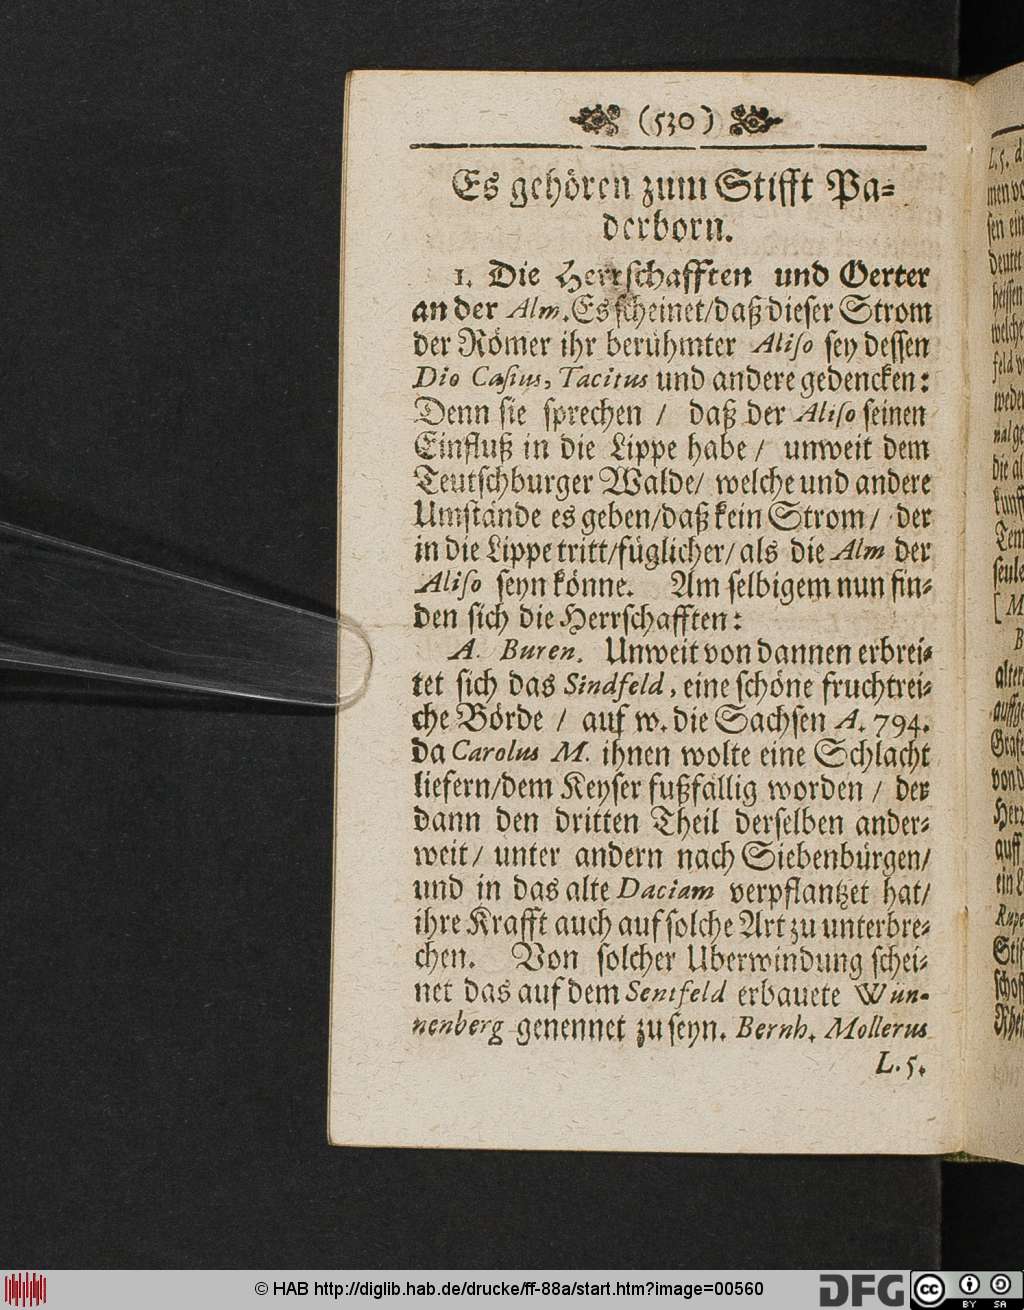 (530)
Es gehören zum Stifft Pa-
derborn.
1. Die Herrschafften und Oerter
an der Alm. Es scheinet/daß dieser Strom
der Römer ihr berühmter Aliso sey dessen
Dio Casius, Tacitus und andere gedencken:
Denn sie sprechen / daß der Aliso seinen
Einfluß in die Lippe habe / unweit dem
Teutschburger Walde/ welche und andere
Umstände es geben/daß kein Strom / der
in die Lippe tritt/füglicher/als die Alm der
Aliso seyn könne. Am selbigem nun fin-
den sich die Herrschafften:
A. Buren. Unweit von dannen erbrei-
tet sich das Sindfeld, eine schöne fruchtrei-
che Börde / auf w. die Sachsen A. 794.
da Carolus M. ihnen wolte eine Schlacht
liefern/dem Keyser fußfällig worden / der
dann den dritten Theil derselben ander-
weit/ unter andern nach Siebenbürgen/
und in das alte Daciam verpflantzet hat/
ihre Krafft auch auf solche Art zu unterbre-
chen. Von solcher Uberwindung schei-
net das auf dem Sentfeld erbauete Wün-
nenberg genennet zu seyn. Bernh. Mollerus
L. 5.
© HAB http://diglib.hab.de/drucke/ff-88a/start.htm?image=00560
DFG
cc
BY SA